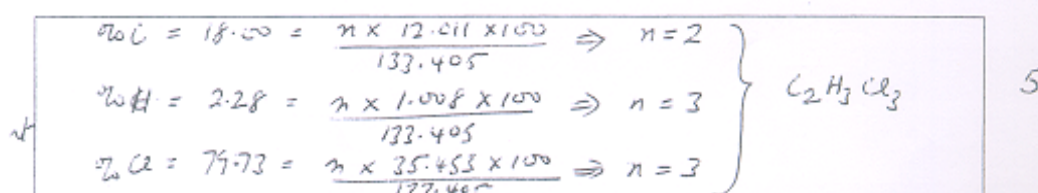 %C = 18.00 = n × 12.011 × 100 / 133.405 ⇒ n = 2
%H = 2.28 = n × 1.008 × 100 / 133.405 ⇒ n = 3
%Cl = 79.73 = n × 35.453 × 100 / 133.405 ⇒ n = 3
C₂H₃Cl₃
5